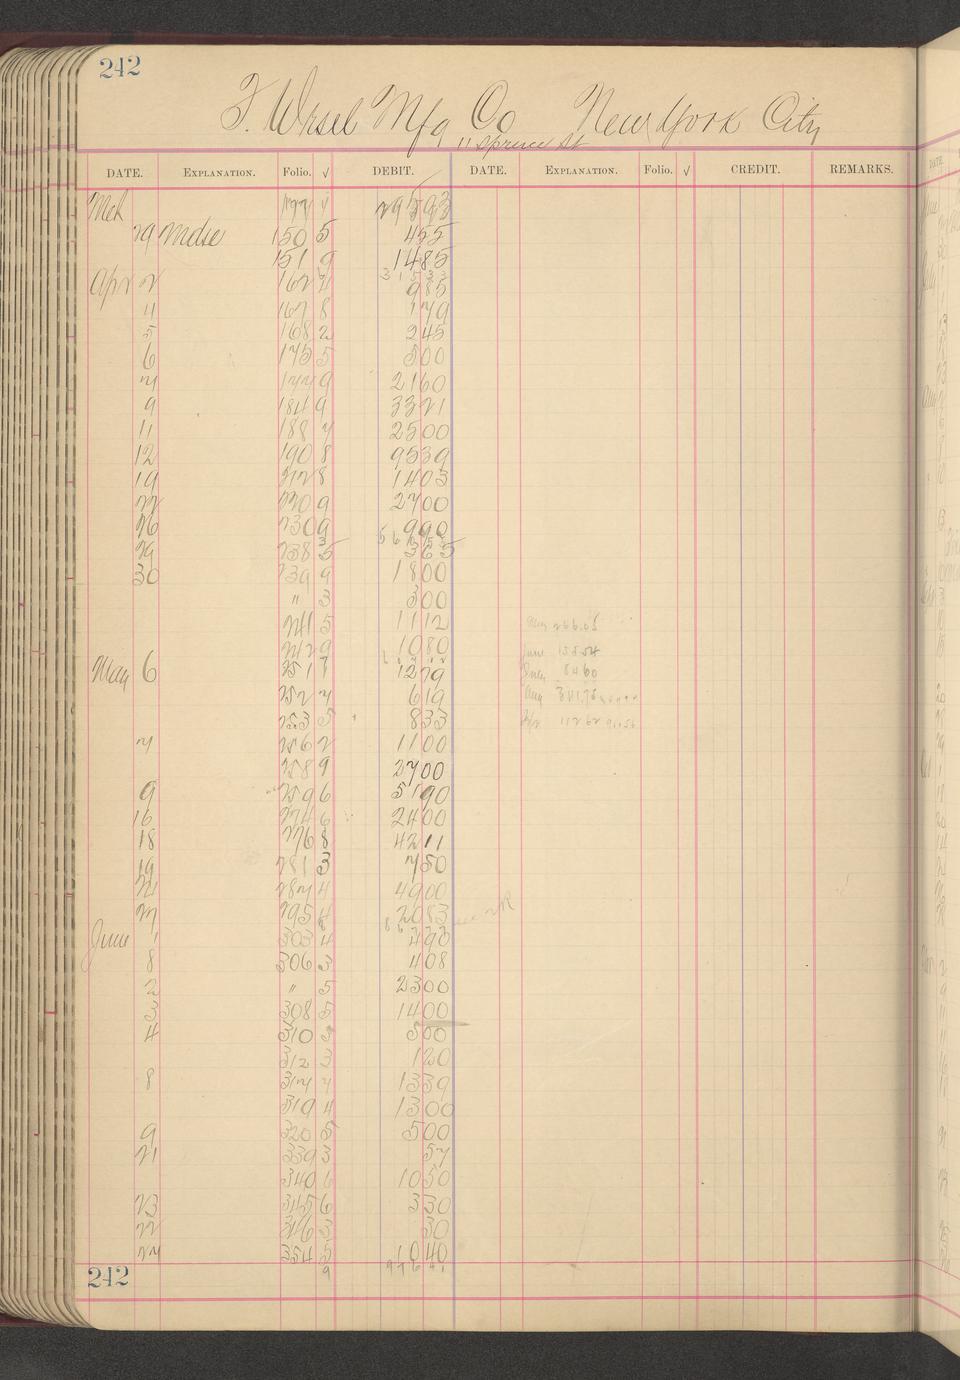 242
F. Wesel Mfg Co New York City
11 Spruce St
DATE. EXPLANATION. Folio. √ DEBIT. DATE. EXPLANATION. Folio. √ CREDIT. REMARKS.
Mch 177 √ 295 93
29 Mdse 150 5 4 55
151 9 14 85
315 33
Apr 2 162 7 9 85
4 167 8 1 79
5 168 2 2 45
6 175 5 5 00
7 177 9 21 60
9 184 9 33 21
11 188 7 25 00
12 190 8 95 39
19 212 8 14 03
22 220 9 27 00
26 230 9 9 90
29 238 5 3 65
30 239 9 18 00
" 3 3 00
241 5 11 12
Aug 266.05
242 9 10 80
June 158 54
May 6 251 7 12 79
July 84 60
252 7 6 19
Aug 341.75
253 5 8 33
112 62
7 256 2 11 00
258 9 27 00
9 259 6 51 90
16 274 6 24 00
18 276 8 42 11
19 281 3 7 50
21 287 4 49 00
27 295 4 20 83
June 1 303 4 4 90
8 306 3 4 08
2 " 5 23 00
3 308 5 14 00
4 310 3 5 00
312 3 1 20
8 317 7 13 39
319 4 13 00
9 320 5 5 00
21 339 3 57
340 6 10 50
23 345 6 3 30
22 346 3 30
27 354 5 10 40
242